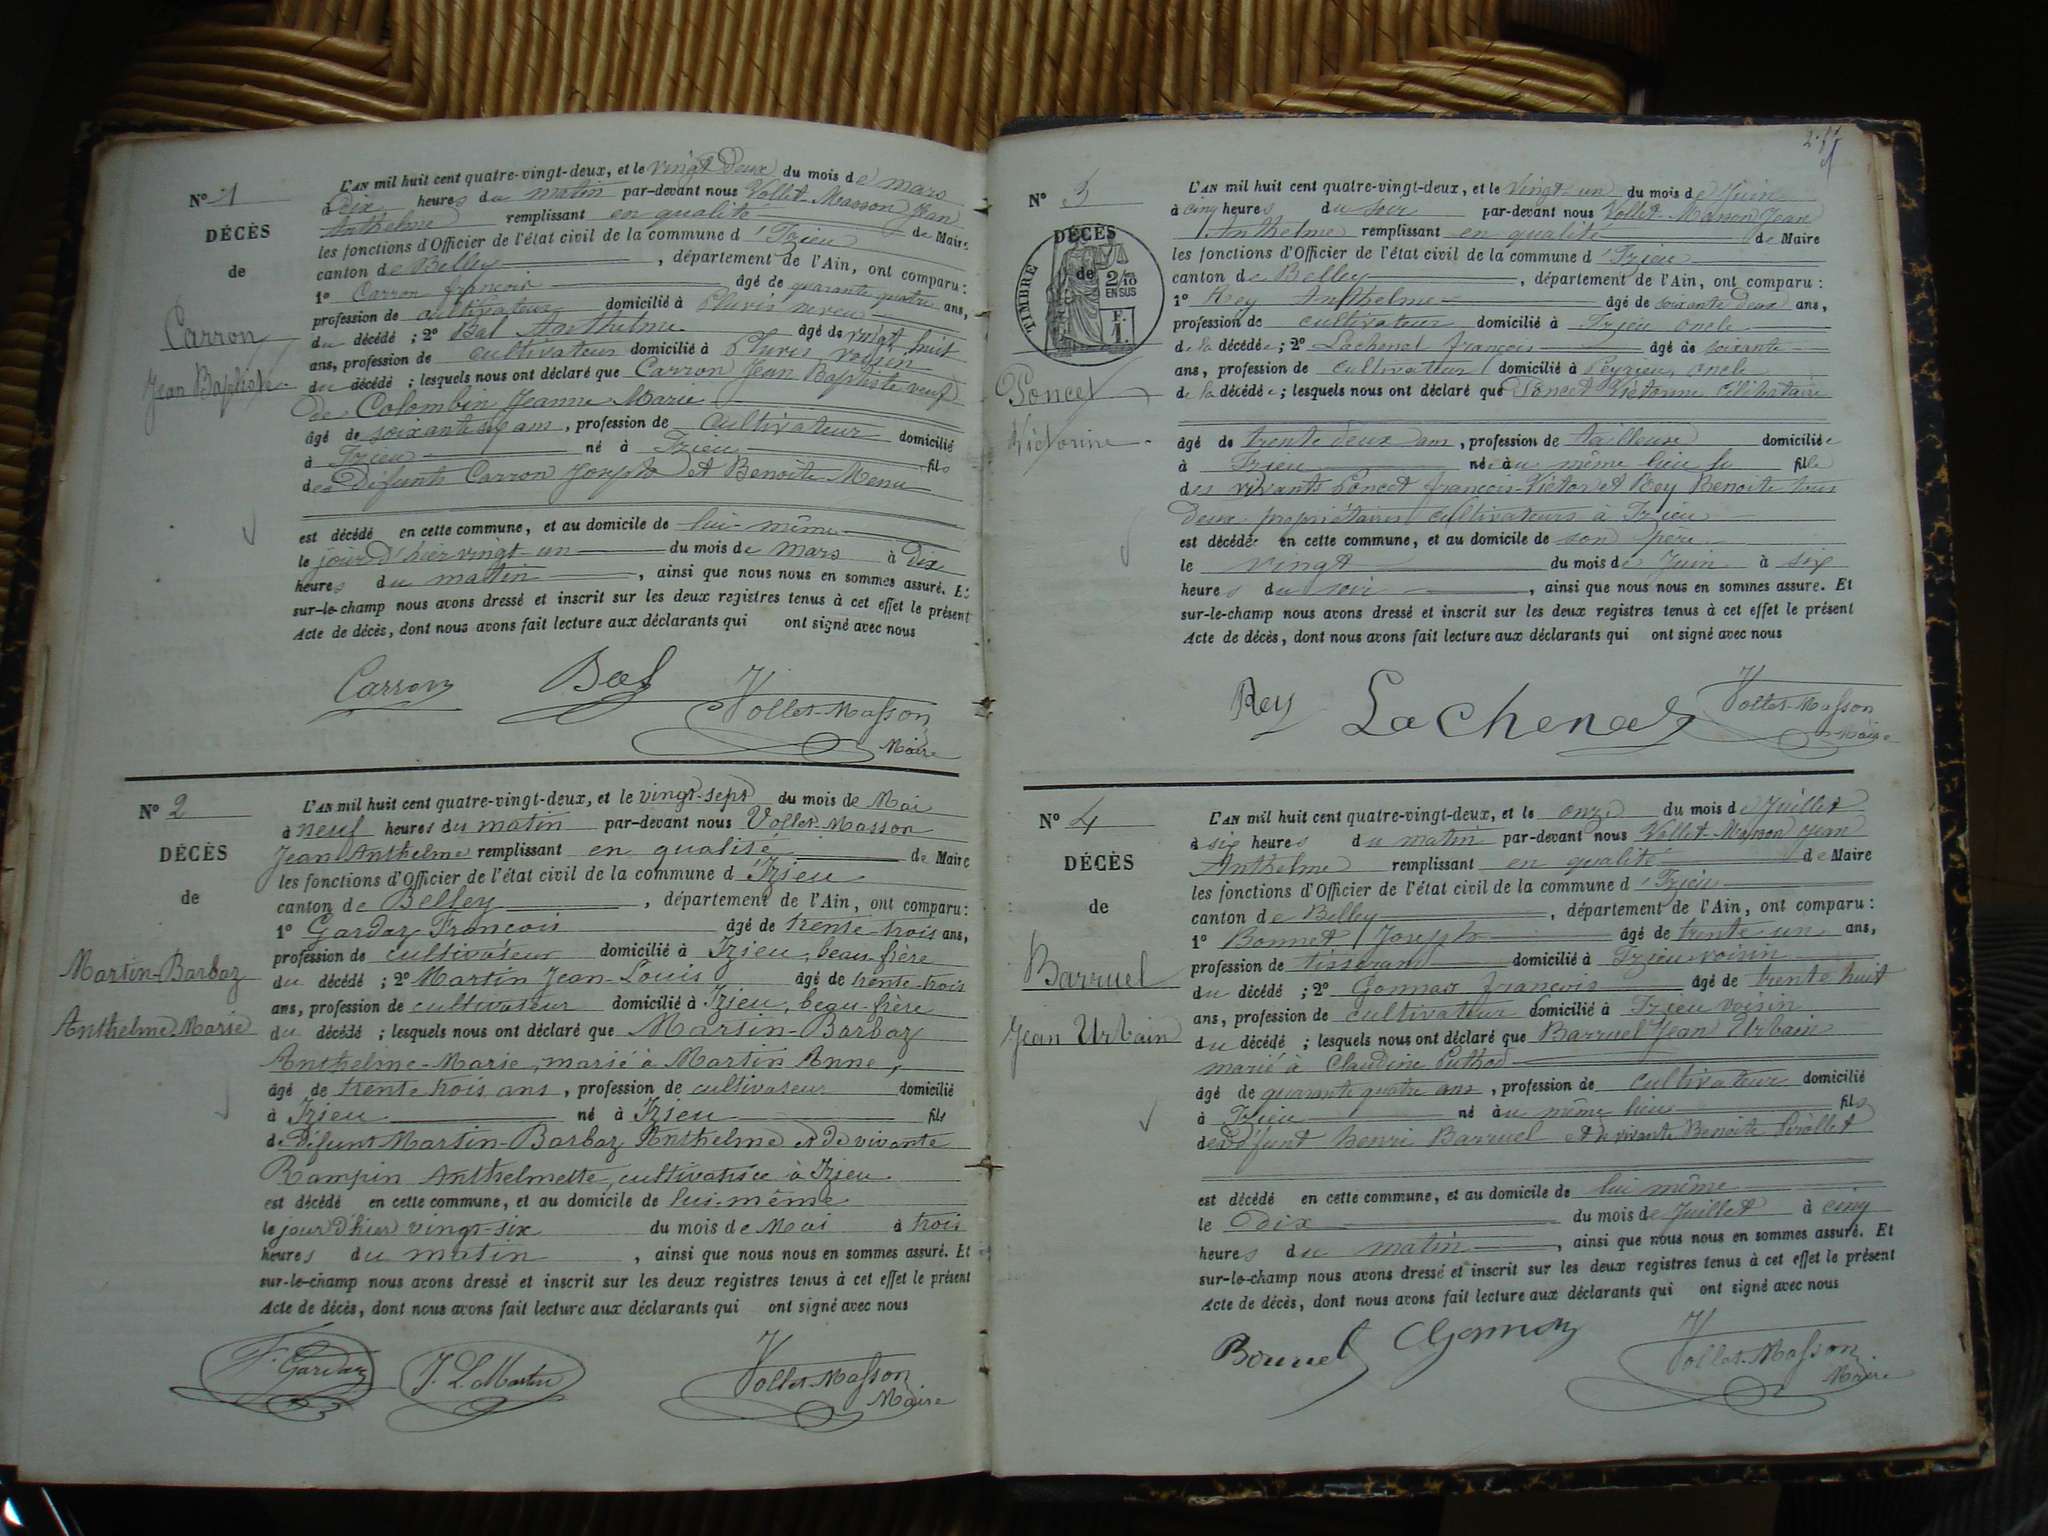 N° 1
DÉCÈS
de
Carron
Jean Baptiste
L'AN mil huit cent quatre-vingt-deux, et le vingt Deux du mois de mars
à Dix heures du matin par-devant nous Vollet-Masson Jean
Anthelme remplissant en qualité de Maire
les fonctions d'Officier de l'état civil de la commune d'Izieu
canton de Belley, département de l'Ain, ont comparu :
1° Carron françois âgé de quarante quatre ans,
profession de cultivateur domicilié à neveu
du décédé ; 2° Bal Anthelme âgé de vingt huit
ans, profession de cultivateur domicilié à voisin
du décédé ; lesquels nous ont déclaré que Carron Jean Baptiste veuf
de Colombin Jeanne Marie
âgé de soixante ans, profession de cultivateur domicilié
à Izieu né à Izieu fils
des Défunts Carron Joseph et Benoite Menu
est décédé en cette commune, et au domicile de lui-même
le jour d'hier vingt-un du mois de mars à Dix
heures du matin, ainsi que nous nous en sommes assuré. Et
sur-le-champ nous avons dressé et inscrit sur les deux registres tenus à cet effet le présent
Acte de décès, dont nous avons fait lecture aux déclarants qui ont signé avec nous
Carron Bal Vollet-Masson
Maire
N° 2
DÉCÈS
de
Martin-Barbaz
Anthelme Marie
L'AN mil huit cent quatre-vingt-deux, et le vingt-sept du mois de Mai
à neuf heures du matin par-devant nous Vollet-Masson
Jean-Anthelme remplissant en qualité de Maire
les fonctions d'Officier de l'état civil de la commune d'Izieu
canton de Belley, département de l'Ain, ont comparu :
1° Gardaz François âgé de trente-trois ans,
profession de cultivateur domicilié à Izieu, beau-frère
du décédé ; 2° Martin Jean-Louis âgé de trente-trois
ans, profession de cultivateur domicilié à Izieu, beau-frère
du décédé ; lesquels nous ont déclaré que Martin-Barbaz
Anthelme-Marie, marié à Martin Anne,
âgé de trente trois ans, profession de cultivateur domicilié
à Izieu né à Izieu fils
de Défunt Martin-Barbaz Anthelme et de vivante
Rampin Anthelmette, cultivatrice à Izieu
est décédé en cette commune, et au domicile de lui-même
le jour d'hier vingt-six du mois de Mai à trois
heures du matin, ainsi que nous nous en sommes assuré. Et
sur-le-champ nous avons dressé et inscrit sur les deux registres tenus à cet effet le présent
Acte de décès, dont nous avons fait lecture aux déclarants qui ont signé avec nous
F. Gardaz J. L. Martin Vollet-Masson
Maire
N° 3
DÉCÈS
de
TIMBRE
2/10
EN SUS
F.
1.
Poncet
Victorine
L'AN mil huit cent quatre-vingt-deux, et le vingt-un du mois de Juin
à cinq heures du soir par-devant nous Vollet-Masson Jean
Anthelme remplissant en qualité de Maire
les fonctions d'Officier de l'état civil de la commune d'Izieu
canton de Belley, département de l'Ain, ont comparu :
1° Rey Anthelme âgé de soixante deux ans,
profession de cultivateur domicilié à Izieu oncle
de la décédée ; 2° Lachenal françois âgé de soixante
ans, profession de cultivateur domicilié à Peyrieu, oncle
de la décédée ; lesquels nous ont déclaré que Poncet Victorine Célibataire
âgé de trente deux ans, profession de tailleuse domiciliée
à Izieu née au même lieu fille
des vivants Poncet françois-Victor et Rey Benoite tous
deux propriétaires cultivateurs à Izieu
est décédée en cette commune, et au domicile de son père
le vingt du mois de Juin à six
heures du soir, ainsi que nous nous en sommes assuré. Et
sur-le-champ nous avons dressé et inscrit sur les deux registres tenus à cet effet le présent
Acte de décès, dont nous avons fait lecture aux déclarants qui ont signé avec nous
Rey Lachenal Vollet-Masson
Maire
N° 4
DÉCÈS
de
Barruel
Jean Urbain
L'AN mil huit cent quatre-vingt-deux, et le onze du mois de Juillet
à six heures du matin par-devant nous Vollet-Masson Jean
Anthelme remplissant en qualité de Maire
les fonctions d'Officier de l'état civil de la commune d'Izieu
canton de Belley, département de l'Ain, ont comparu :
1° Bonnet Joseph âgé de trente un ans,
profession de tisserand domicilié à Izieu voisin
du décédé ; 2° françois âgé de trente huit
ans, profession de cultivateur domicilié à Izieu voisin
du décédé ; lesquels nous ont déclaré que Barruel Jean Urbain
marié à Claudine Puthod
âgé de quarante quatre ans, profession de cultivateur domicilié
à Izieu né au même lieu fils
de Défunt henri Barruel et de vivante Benoite
est décédé en cette commune, et au domicile de lui même
le Dix du mois de Juillet à cinq
heures du matin, ainsi que nous nous en sommes assuré. Et
sur-le-champ nous avons dressé et inscrit sur les deux registres tenus à cet effet le présent
Acte de décès, dont nous avons fait lecture aux déclarants qui ont signé avec nous
Bonnet Vollet-Masson
Maire